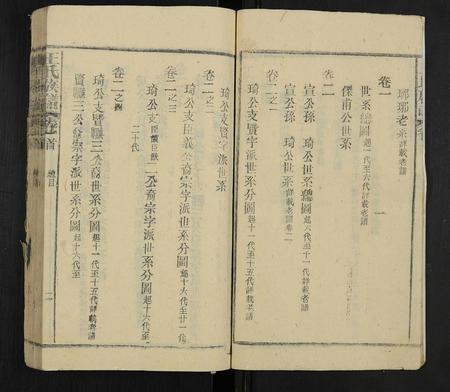 瑯琊老系詳載老譜
卷一
世系總圖起一代至六代詳載老譜
傑甫公世系
卷二
宣公孫 琦公世系總圖起六代至十一代詳載老譜
宣公孫 琦公世系詳載老譜卷二
琦公支賢字派世系分圖起十一代至十五代詳載老譜
琦公支賢字派世系
卷二之二
琦公支臣義公裔宗字派世系分圖起十六代至廿一代
卷二之三
琦公支臣獻臣猷二公裔宗字派世系分圖起十六代至二十代
卷二之四
琦公支賢三公裔世系分圖起十一代至十五代詳載老譜
賢三公裔宗字派世系分圖起十六代至
王氏族譜 卷首 總目 二